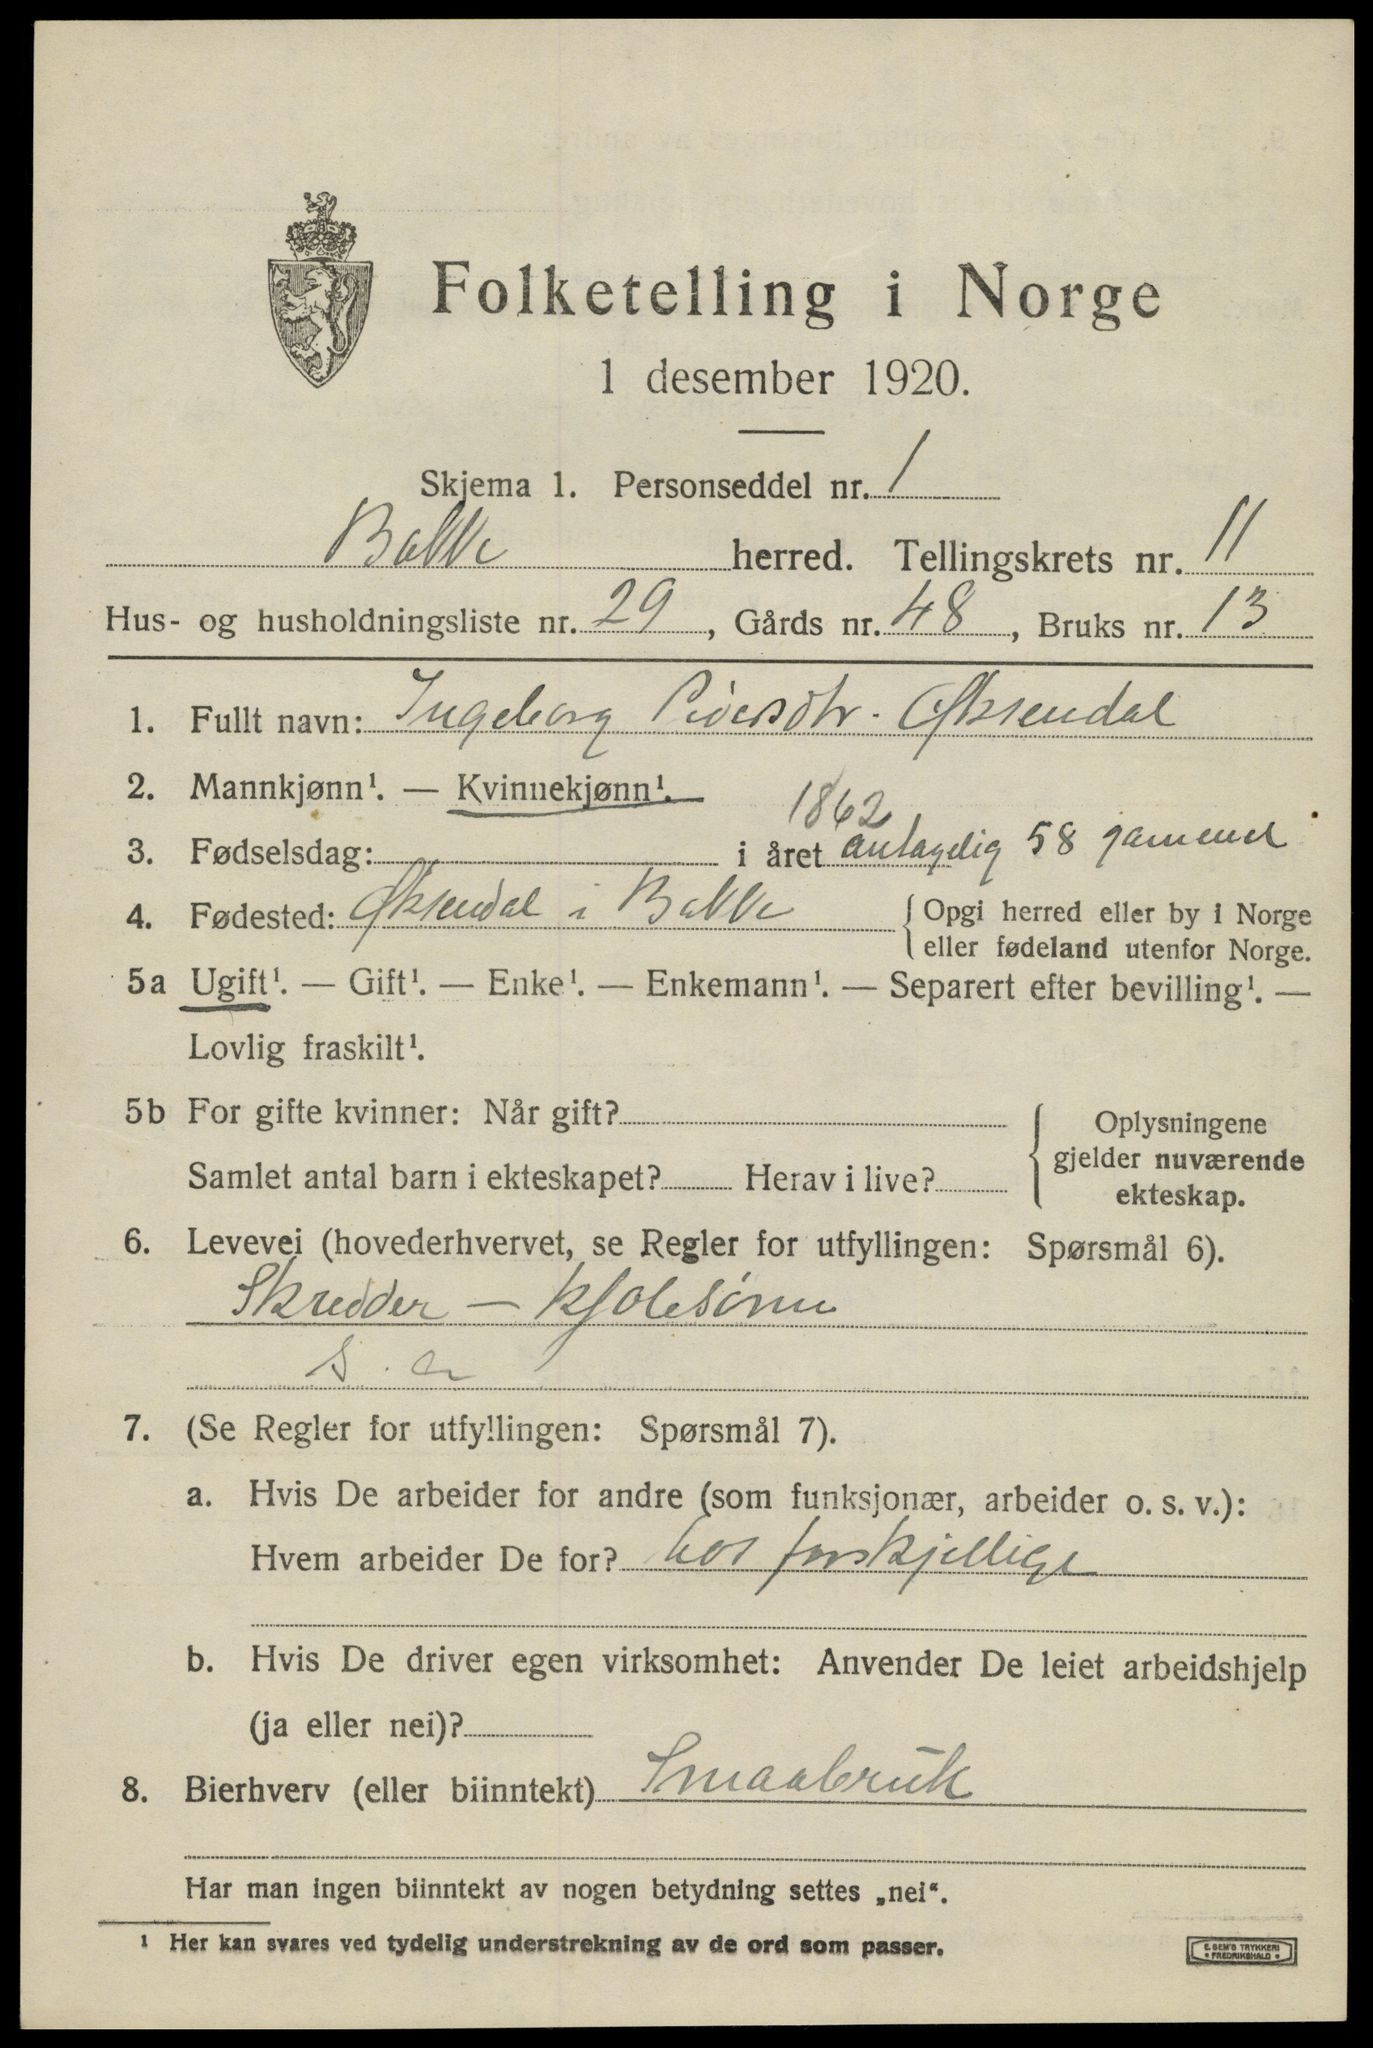 Folketelling i Norge
1 desember 1920.
Skjema 1. Personseddel nr. 1
Bakke herred. Tellingskrets nr. 11
Hus- og husholdningsliste nr. 29, Gårds nr. 48, Bruks nr. 13
1. Fullt navn: Ingeborg Øksendal
2. Mannkjønn¹. — Kvinnekjønn¹.
1862
3. Fødselsdag: i året antagelig 58 gammel
4. Fødested: Øksendal i Bakke { Opgi herred eller by i Norge
eller fødeland utenfor Norge.
5a Ugift¹. — Gift¹. — Enke¹. — Enkemann¹. — Separert efter bevilling¹. —
Lovlig fraskilt¹.
5b For gifte kvinner: Når gift?
Samlet antal barn i ekteskapet? Herav i live?
{ Oplysningene
gjelder nuværende
ekteskap.
6. Levevei (hovederhvervet, se Regler for utfyllingen: Spørsmål 6).
Skredder — kjolesømm
s. a
7. (Se Regler for utfyllingen: Spørsmål 7).
a. Hvis De arbeider for andre (som funksjonær, arbeider o. s. v.):
Hvem arbeider De for? hos forskjellige
b. Hvis De driver egen virksomhet: Anvender De leiet arbeidshjelp
(ja eller nei)?
8. Bierhverv (eller biinntekt) Smaabruk
Har man ingen biinntekt av nogen betydning settes „nei“.
¹ Her kan svares ved tydelig understrekning av de ord som passer.
E. SEM'S TRYKKERI
• FREDRIKSHALD •